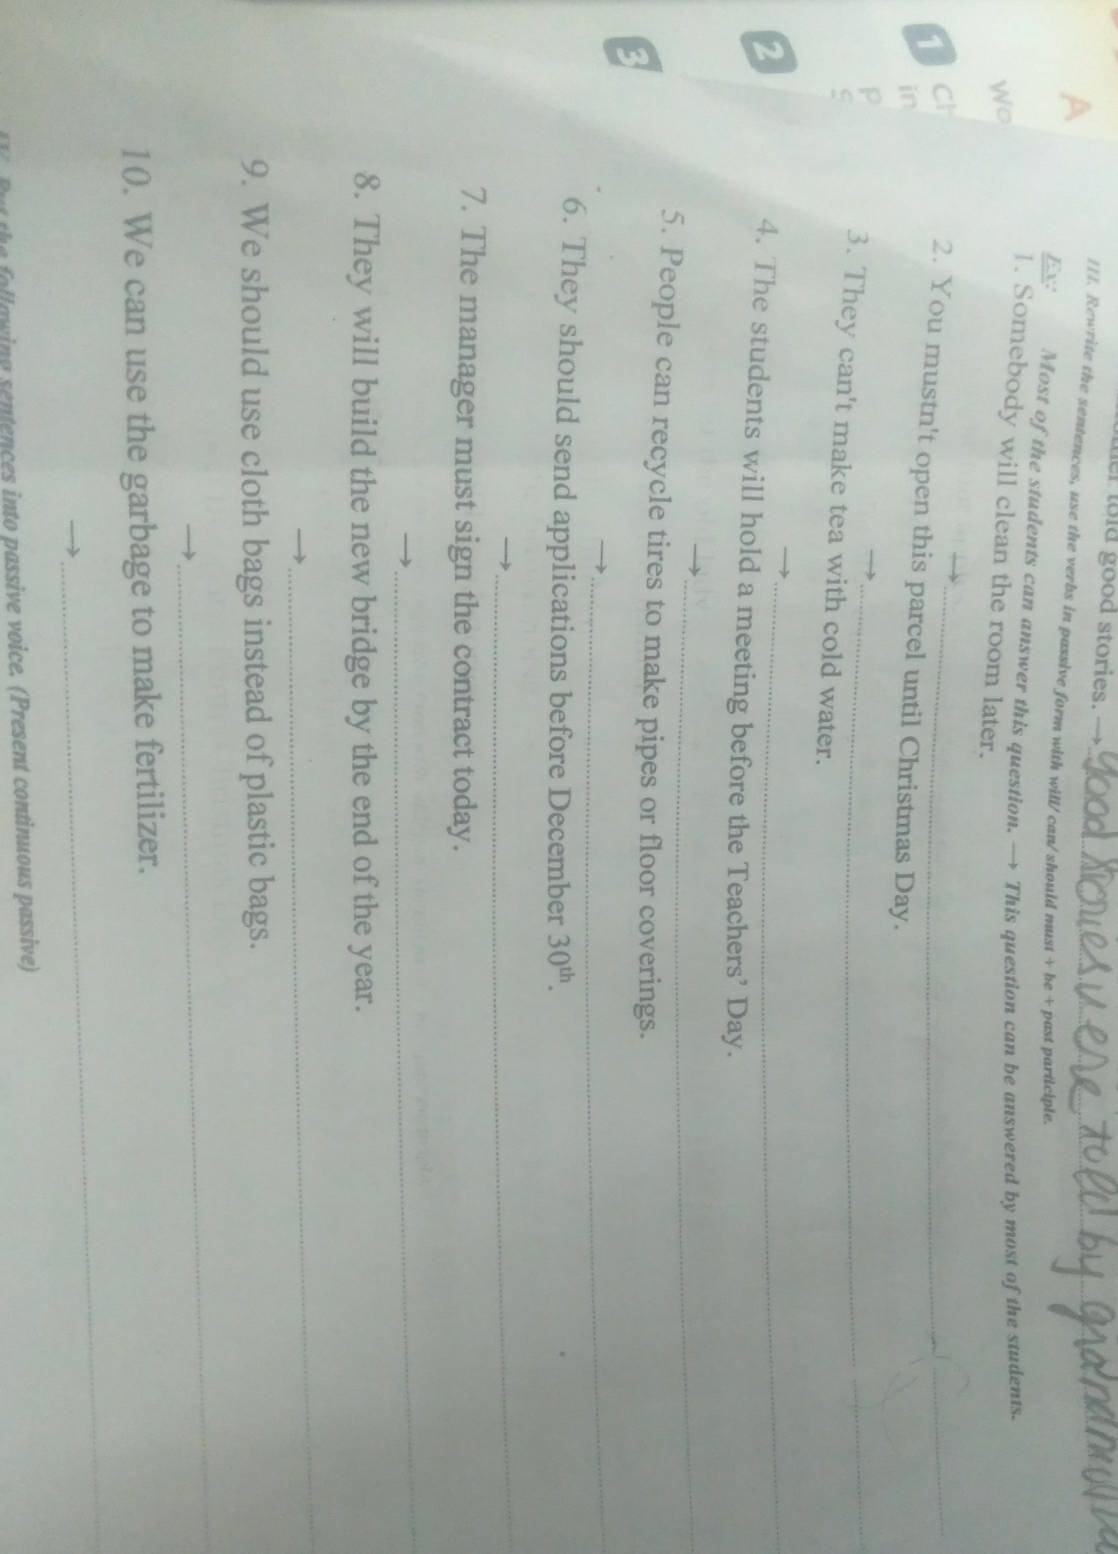 told good stories. → Good stories were told by grandmother
III. Rewrite the sentences, use the verbs in passive form with will/ can/ should must + be + past participle.
Ex: Most of the students can answer this question. → This question can be answered by most of the students.
1. Somebody will clean the room later.
→
2. You mustn't open this parcel until Christmas Day.
→
3. They can't make tea with cold water.
→
4. The students will hold a meeting before the Teachers' Day.
→
5. People can recycle tires to make pipes or floor coverings.
→
6. They should send applications before December 30th.
→
7. The manager must sign the contract today.
→
8. They will build the new bridge by the end of the year.
→
9. We should use cloth bags instead of plastic bags.
→
10. We can use the garbage to make fertilizer.
→
IV. Put the following sentences into passive voice. (Present continuous passive)
A
1
in
2
3